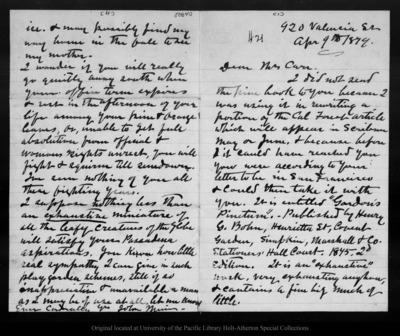 920 Valencia St.
Apr 9th 1879.
Dear Mrs Carr.
I did not send
the pine book to you because I
was using it in rewriting a
portion of the Cal Forest article
which will appear in Scribner
May or June, & because before
it could have reached you
you were according to your
letter to be in San Francisco
& could then take it with
you. It is entitled "Gordon's
Pinetum". Published by Henry
G. Bohn, Henrietta St, Covent
Garden, Simpkin, Marshall & Co.
Stationers Hall Court. 1875. 2d
Edition. It is an "exhaustive"
work, very exhausting anyhow,
& contains a fine big much of
little.
ice. & may possibly find my
way home in the fall to see
my mother.
I wonder if you will really
go quietly away south when
your office term expires
& rest in the afternoon of your
life among your pine & orange
leaves, or, unable to get full
absolution from official &
womans rights unrest, you will
fight & squirm till sundown.
Ive seen nothing of you all
these fighting years.
I suppose nothing less than
an exhaustive miniature of
all the leafy creatures of the globe
will satisfy your Pasadena
aspirations. You know how little
real sympathy I can give in such
play garden schemes, still if so
inappreciative & unavailable a man
as I may be of use at all, let me know
Ever Cordially Yrs John Muir
Original located at University of the Pacific Library Holt-Atherton Special Collections